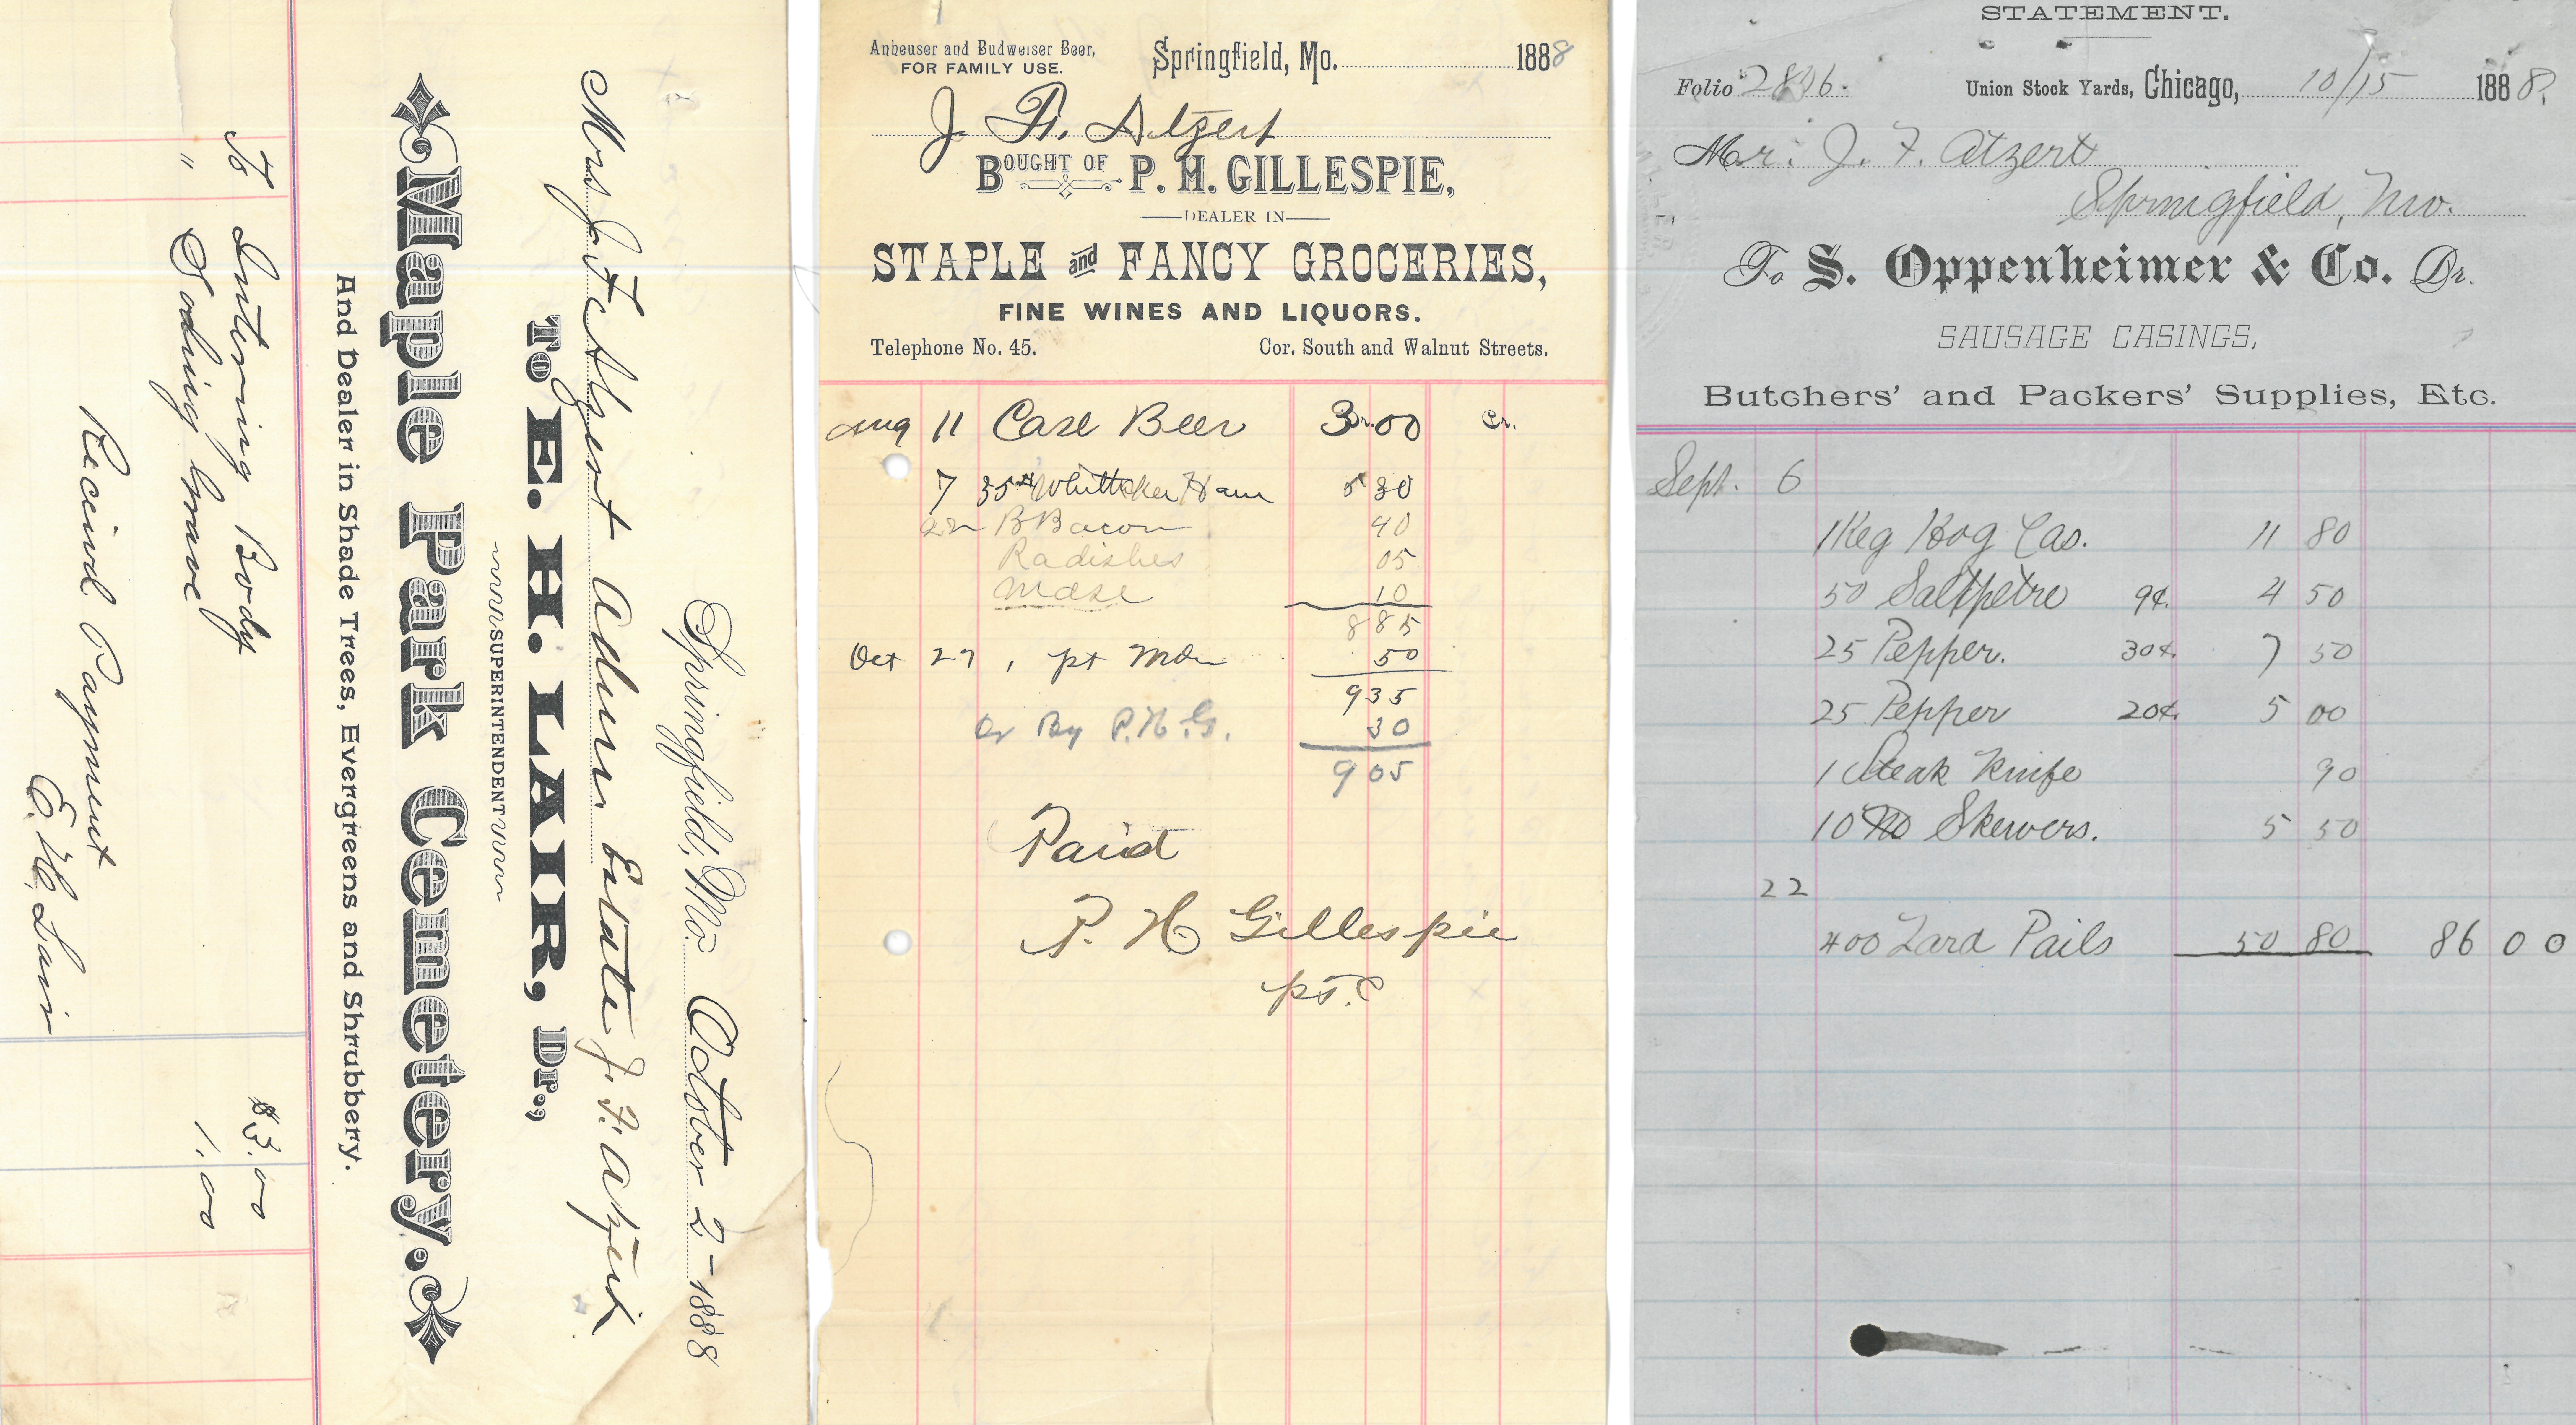 Springfield, Mo. October 2 - 1888
Mrs J. F. Atzert Admr Estate J. F. Atzert
To E. H. LAIR, Dr.,
SUPERINTENDENT
Maple Park Cemetery.
And Dealer in Shade Trees, Evergreens and Shrubbery.
To Intering Body $3.00
" Soding Grave 1.00
Received Payment
E. H. Lair
Anheuser and Budweiser Beer,
FOR FAMILY USE.
Springfield, Mo. 1888
J. F. Atzert
BOUGHT OF P. H. GILLESPIE,
DEALER IN
STAPLE and FANCY GROCERIES,
FINE WINES AND LIQUORS.
Telephone No. 45. Cor. South and Walnut Streets.
Dr. Cr.
Aug 11 Case Beer 3.00
7 35# Whittaker Ham 5 30
22 B Bacon 40
Radishes 05
Mdse 10
8 85
Oct 27 1 pt 50
9 35
Cr By P. H. G. 30
9 05
Paid
P. H. Gillespie
STATEMENT.
Folio 2806. Union Stock Yards, Chicago, 10/15 1888.
Mr. J. F. Atzert
Springfield, Mo.
To S. Oppenheimer & Co. Dr.
SAUSAGE CASINGS,
Butchers' and Packers' Supplies, Etc.
Sept. 6
1 Keg Hog Cas. 11 80
50 Saltpetre 9¢ 4 50
25 Pepper. 30¢ 7 50
25 Pepper 20¢ 5 00
1 Steak Knife 90
10 Skewers. 5 50
22
400 Lard Pails 50 80 86 00